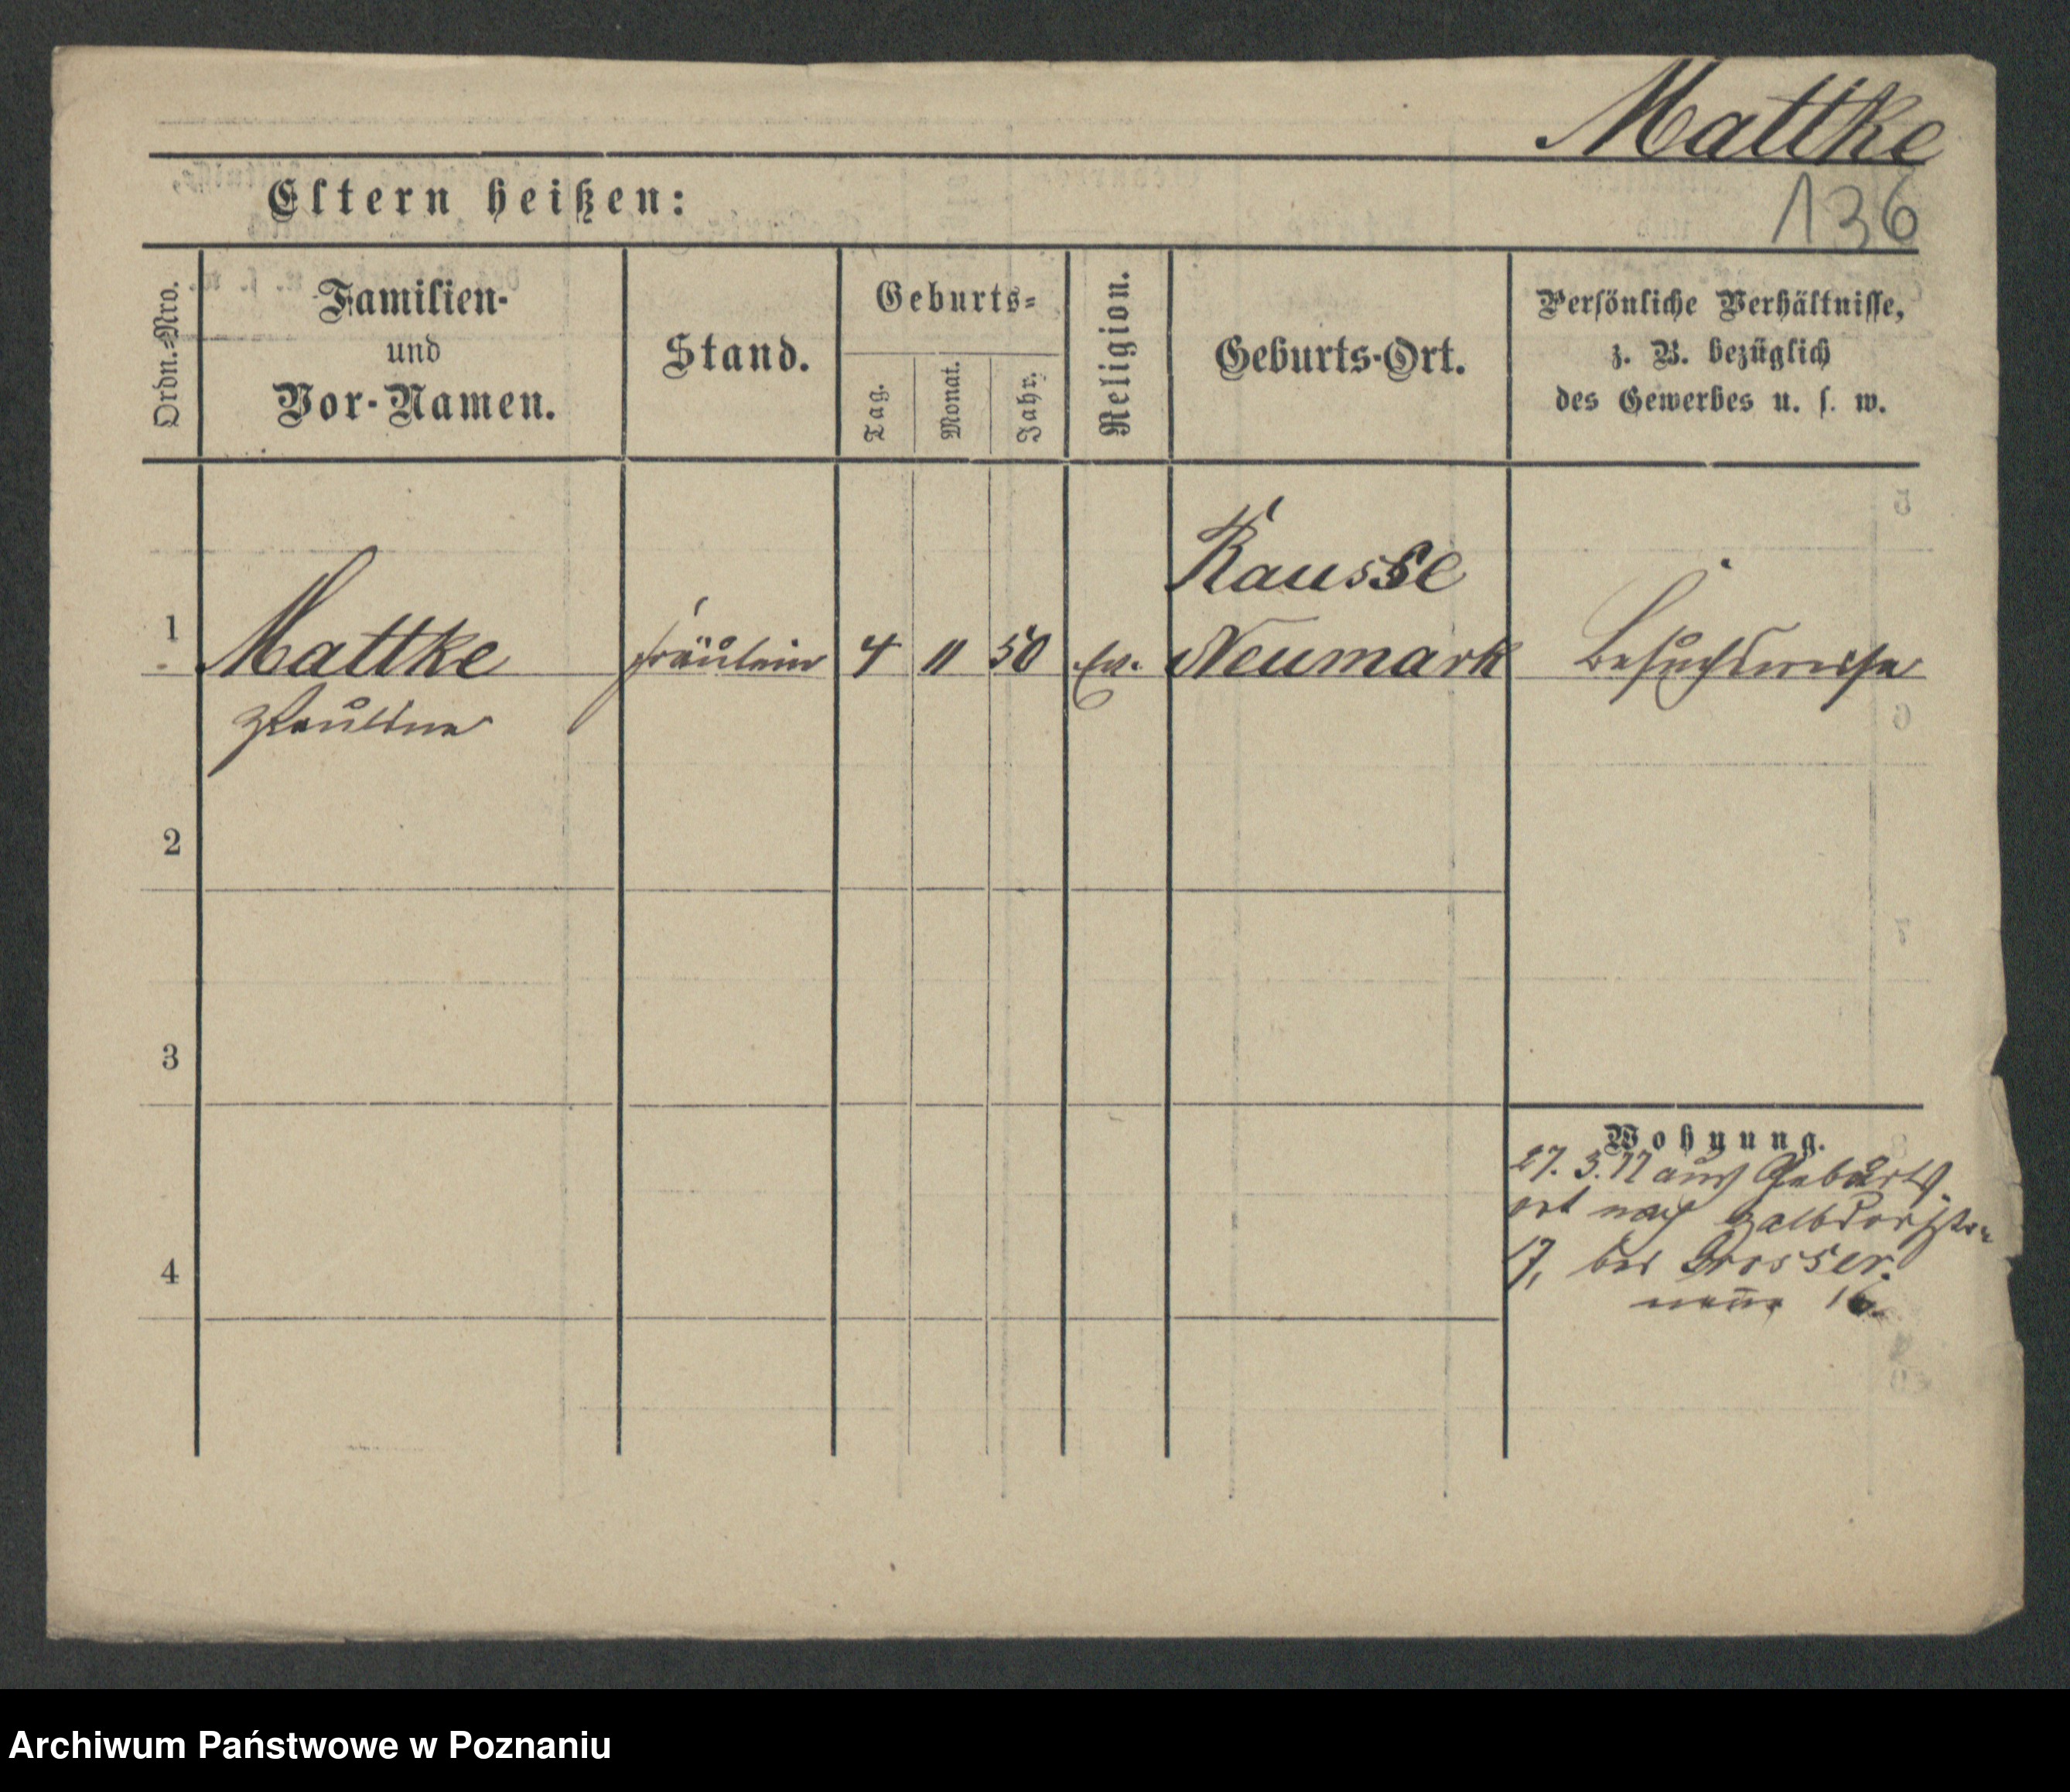 Mattke
136
Eltern heißen:
Ordn.-Nro.
Familien-
und
Vor-Namen.
Stand.
Geburts-
Tag.
Monat.
Jahr.
Religion.
Geburts-Ort.
Persönliche Verhältnisse,
z. B. bezüglich
des Gewerbes u. s. w.
Kausse
1 Mattke Fräulein 4 11 50 ev. Neumark Besuchsweise
Pauline
2
3
Wohnung.
27. 3. 77 aus Geburts-
ort nach Halbdorfstr.
17, bei Grosser.
neue 16.
4
Archiwum Państwowe w Poznaniu